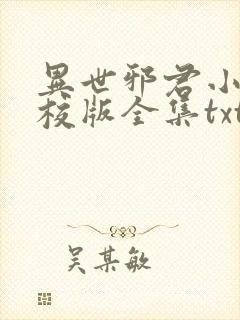 異世邪君小
校版全集txt
吴某敏